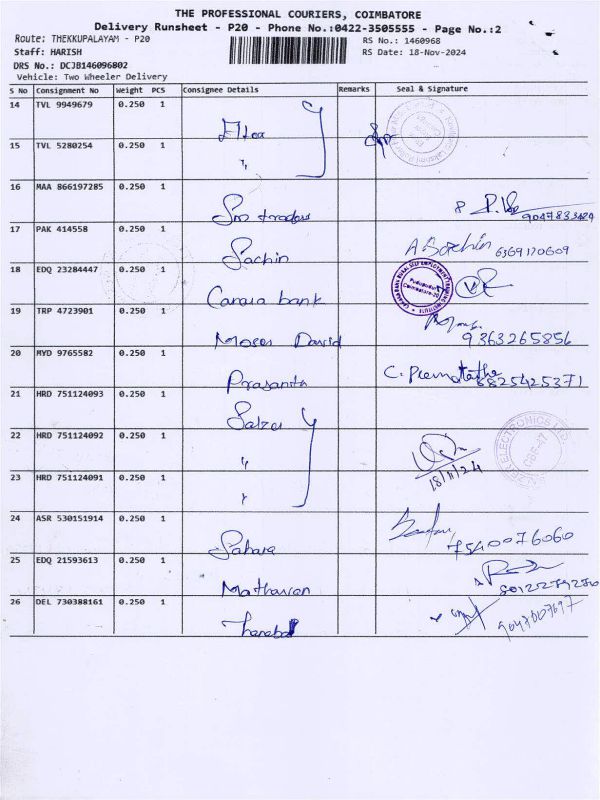 THE PROFESSIONAL COURIERS, COIMBATORE
Delivery Runsheet - P20 - Phone No.:0422-3505555 - Page No.:2
Route: THEKKUPALAYAM - P20
RS No.: 1460968
Staff: HARISH
RS Date: 18-Nov-2024
DRS No.: DCJB146096802
Vehicle: Two Wheeler Delivery
S No Consignment No Weight PCS Consignee Details Remarks Seal & Signature
14 TVL 9949679 0.250 1
15 TVL 5280254 0.250 1
"
16 MAA 866197285 0.250 1
17 PAK 414558 0.250 1
Sachin
A Sachin 6369170609
18 EDQ 23284447 0.250 1
Canara bank
19 TRP 4723901 0.250 1
Moses David
9363265856
20 MYD 9765582 0.250 1
Prasanth
6825425371
21 HRD 751124093 0.250 1
Salzer
22 HRD 751124092 0.250 1
"
18/11/24
23 HRD 751124091 0.250 1
"
24 ASR 530151914 0.250 1
Sahara
7540076060
25 EDQ 21593613 0.250 1
26 DEL 730388161 0.250 1
9047007697